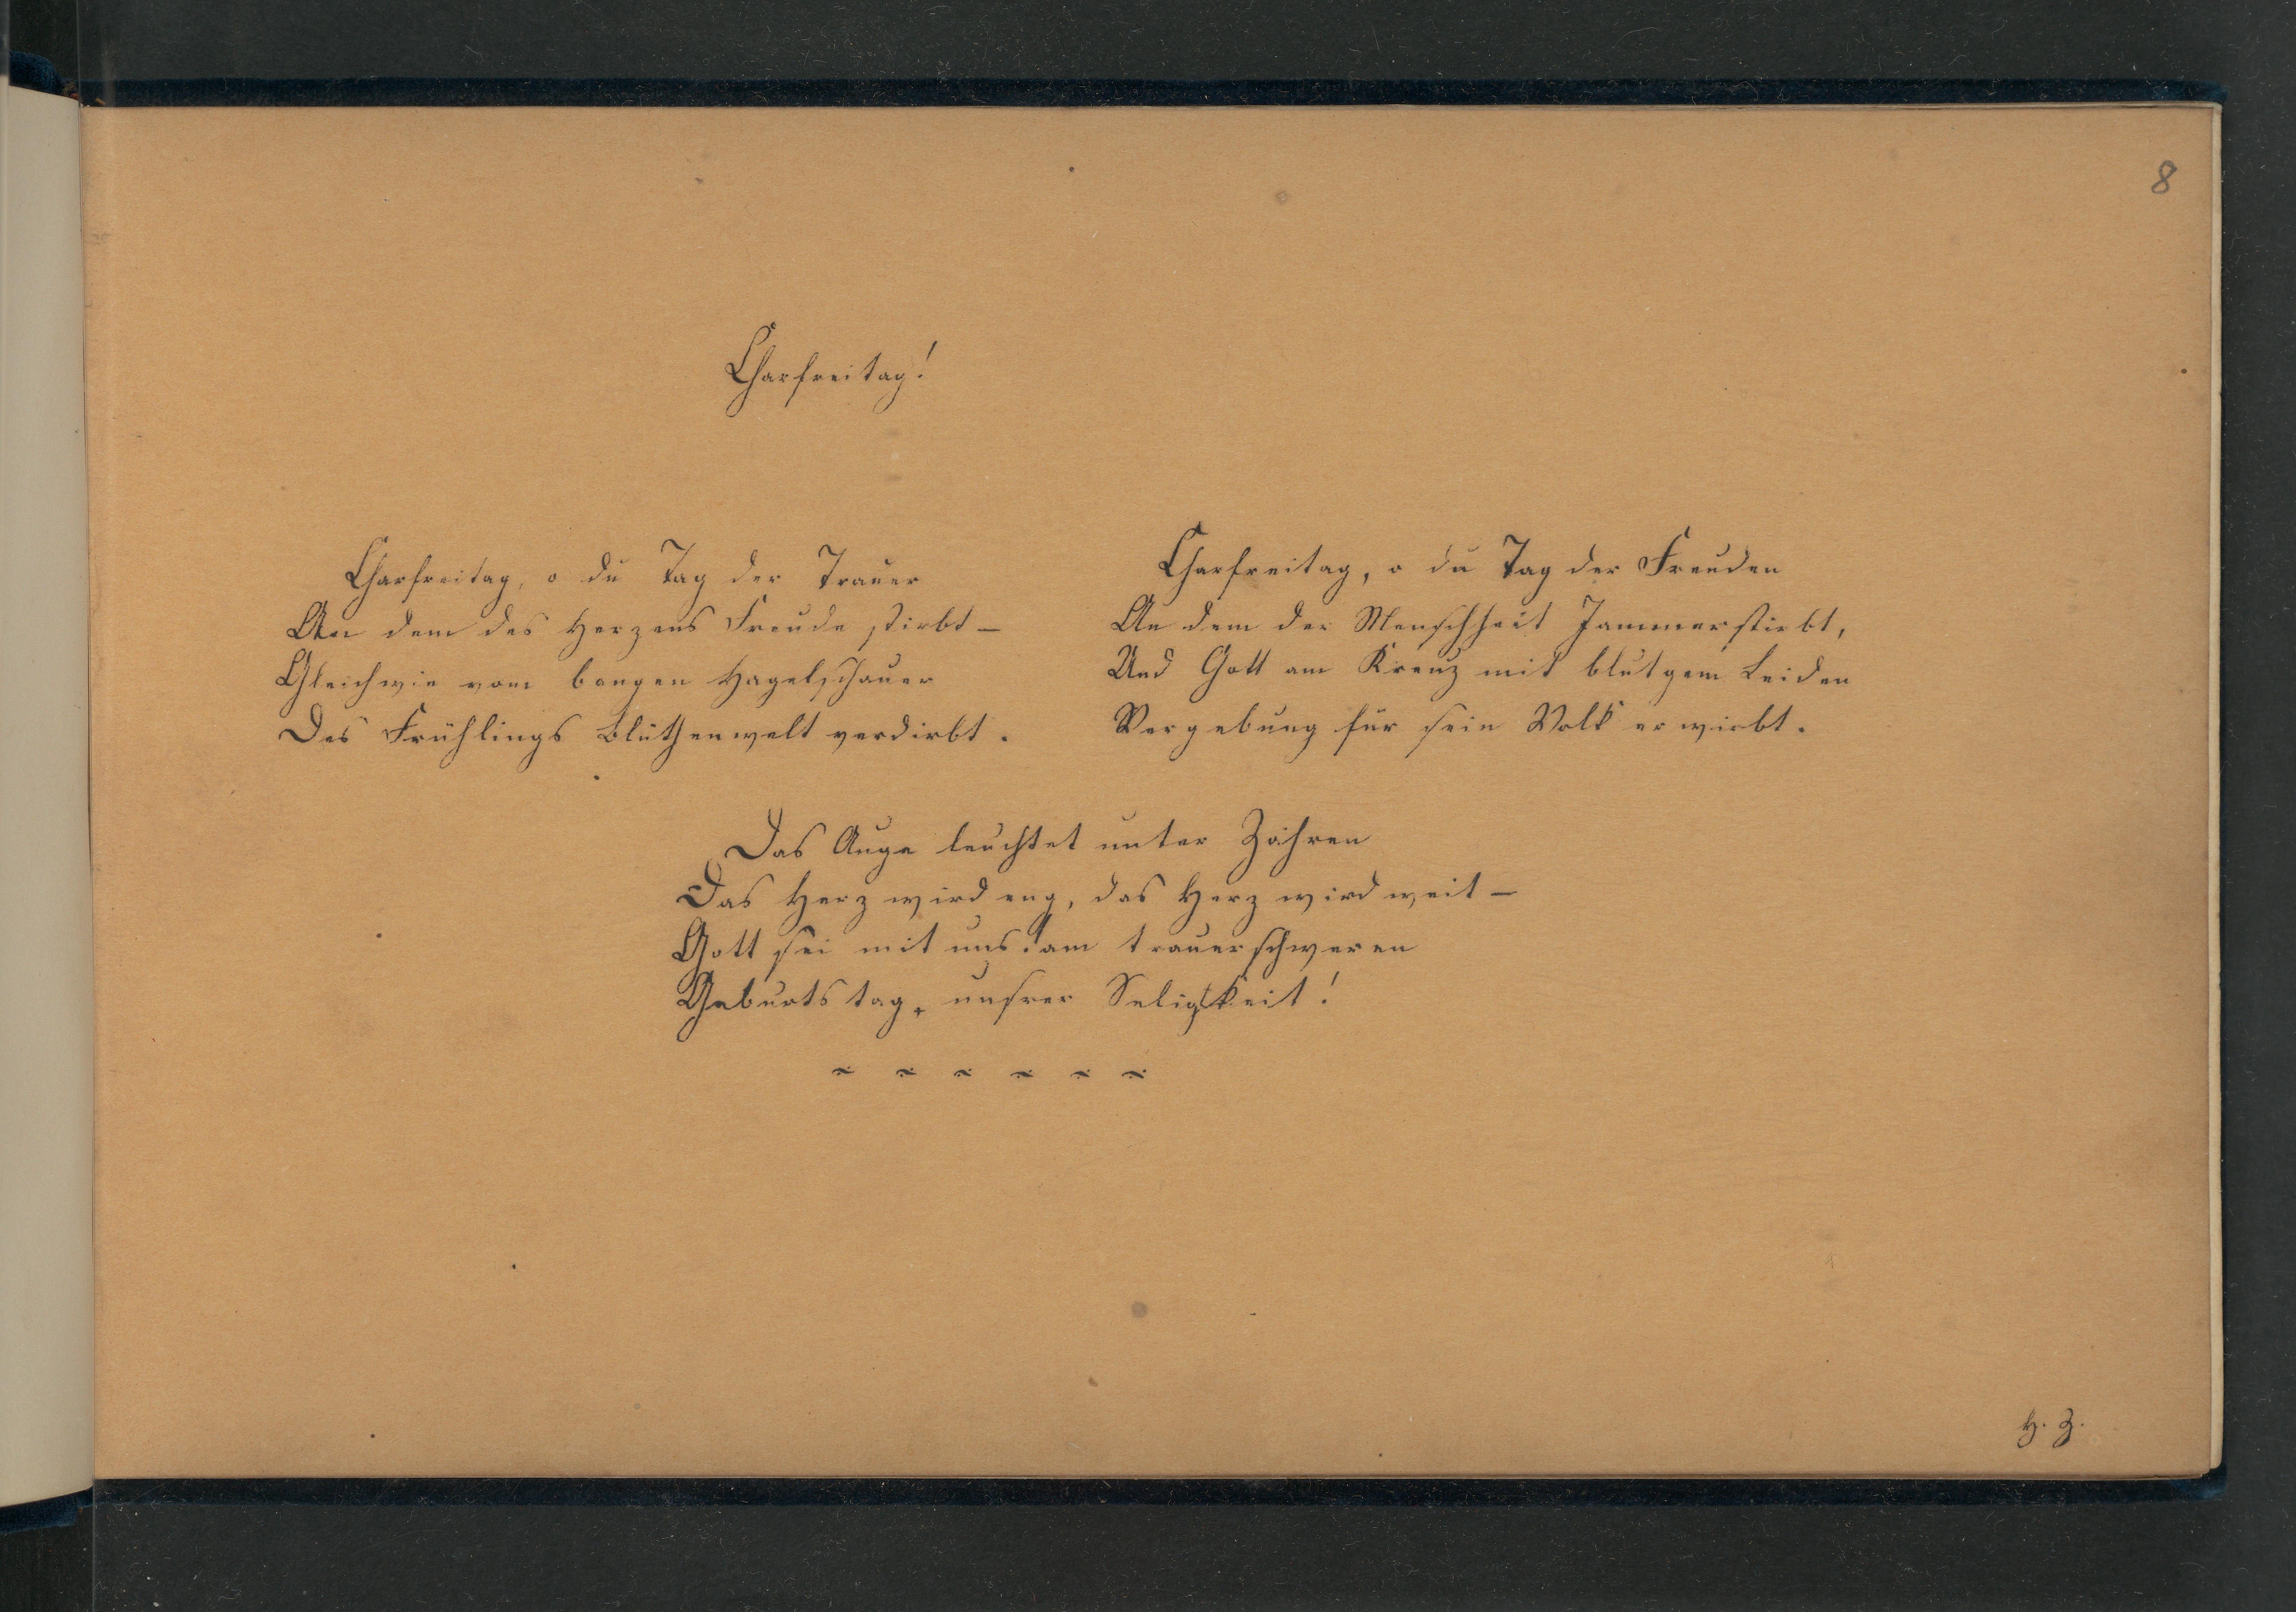 8
Charfreitag!
Charfreitag, o du Tag der Trauer
An dem des Herzens Freude stirbt –
Gleichwie vom bangen Hagelschauer
Des Frühlings Blüthenwelt verdirbt.
Charfreitag, o du Tag der Freuden
An dem der Menschheit Jammer stirbt,
Und Gott am Kreuz mit blutgem Leiden
Vergebung für sein Volk erwirbt.
Das Auge leuchtet unter Zähren
Das Herz wird eng, das Herz wird weit –
Gott sei mit uns! am trauerschweren
Geburtstag, unsrer Seligkeit!
H. Z.